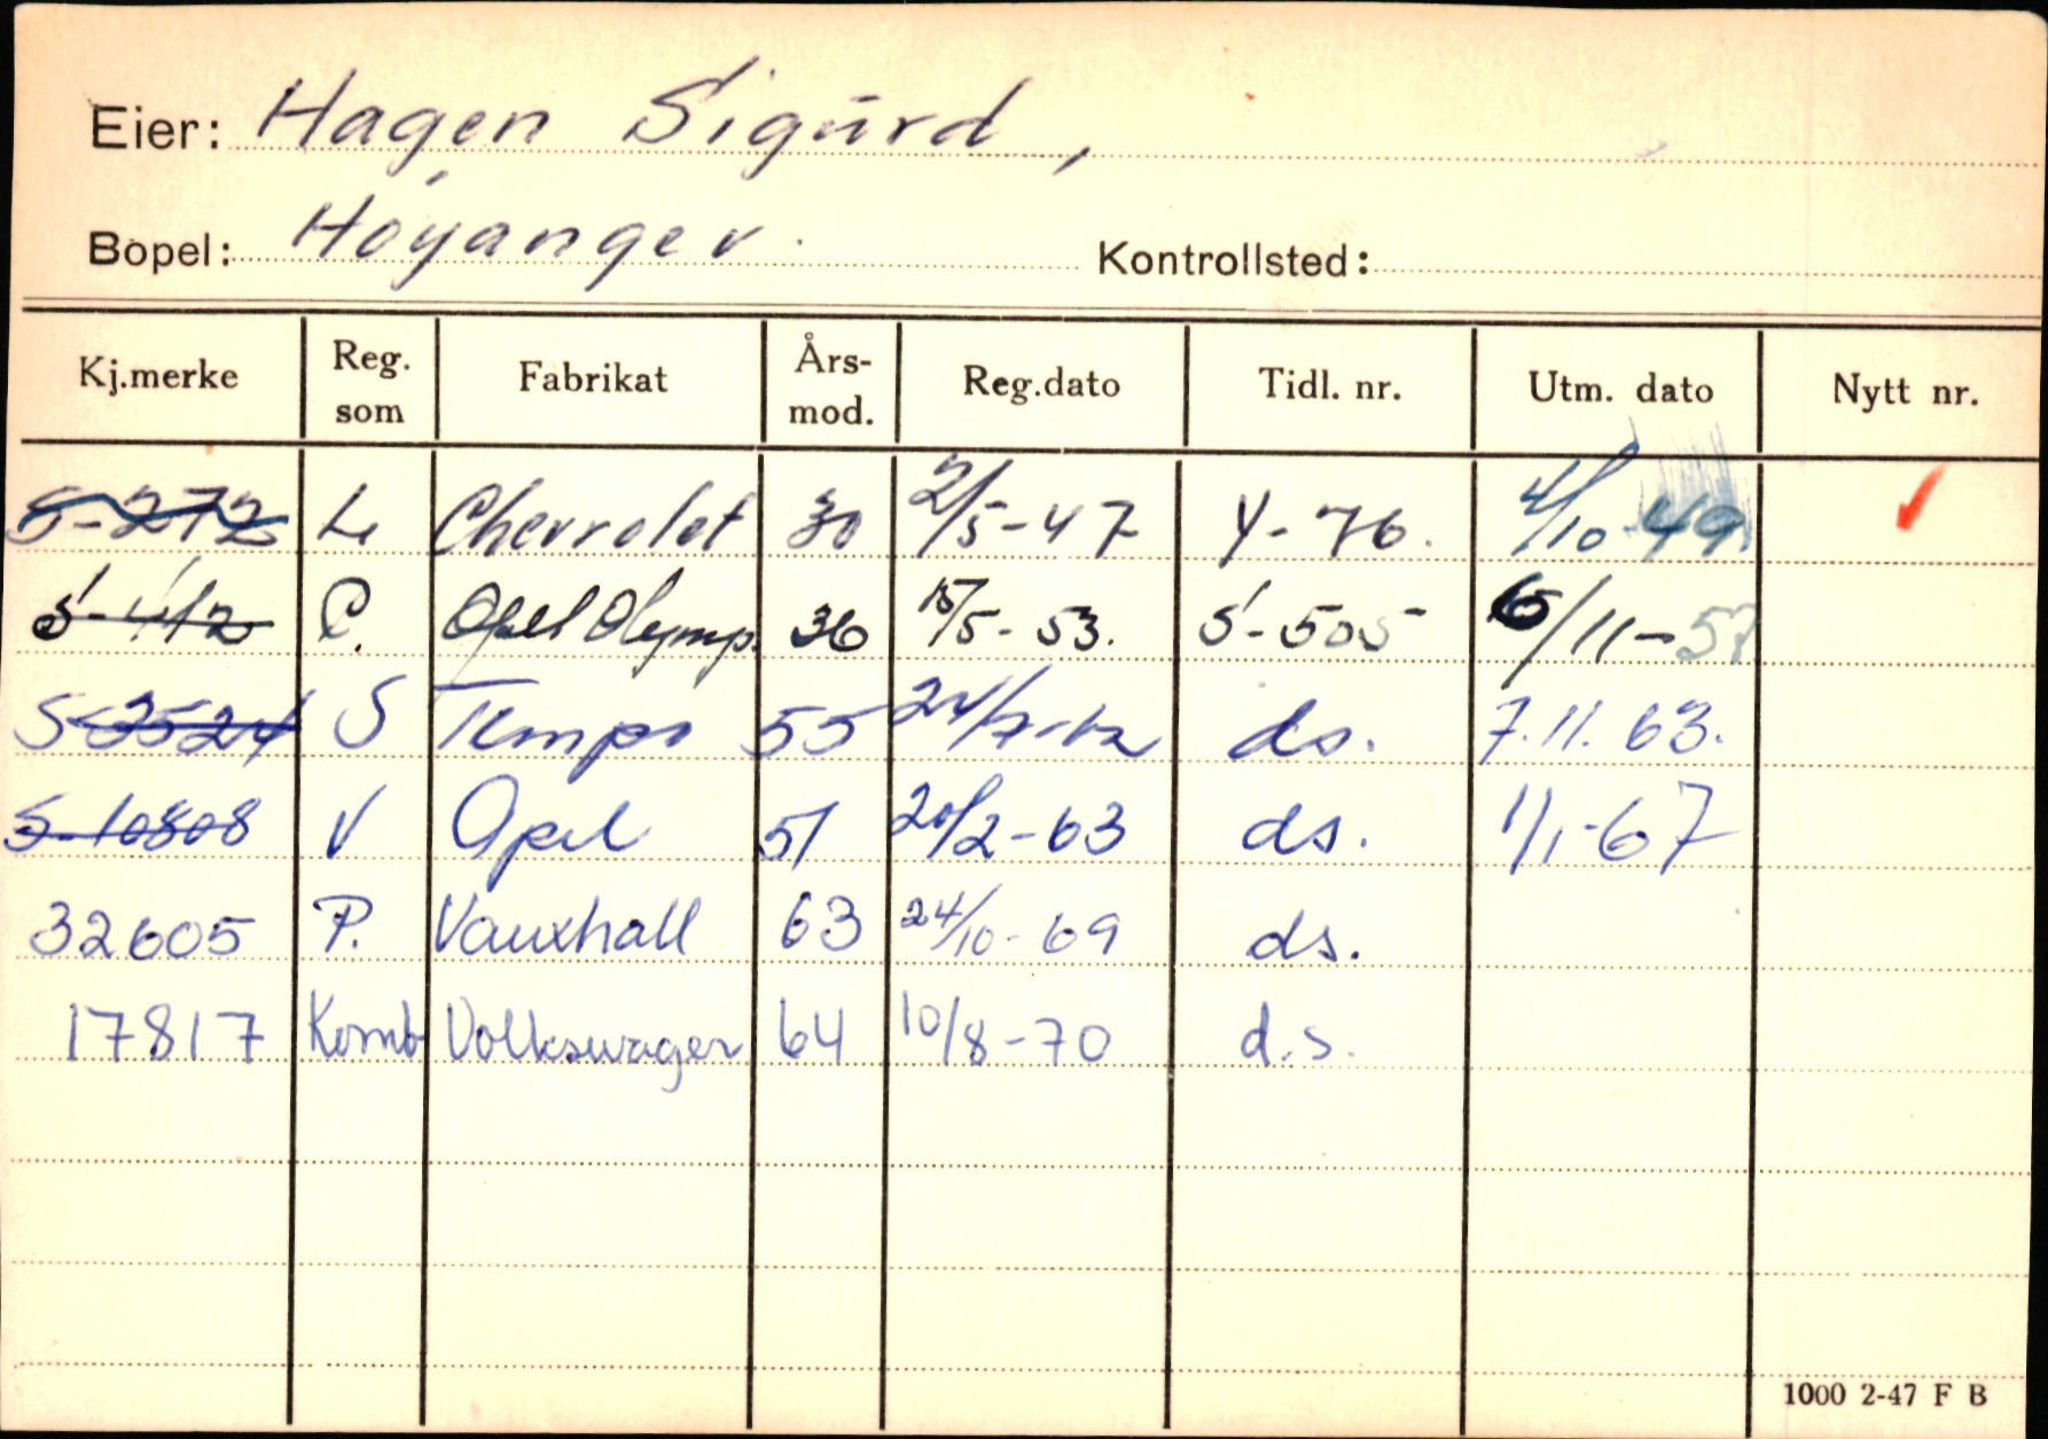 Eier: Hagen Sigurd,
Bopel: Høyanger. Kontrollsted:
Kj.merke Reg. som Fabrikat Års-mod. Reg.dato Tidl. nr. Utm. dato Nytt nr.
S-272 L. Chevrolet 30 2/5-47 Y-76. 4/10-49
S-412 P. Opel Olymp. 36 15/5-53. S-505 /11-57
S-2524 S Tempo 55 24/7-62 ds. 7.11.63.
S-10808 V Opel 51 20/2-63 ds. 1/1-67
32605 P. Vauxhall 63 24/10-69 ds.
17817 Komb Volkswagen 64 10/8-70 d.s.
1000 2-47 F B